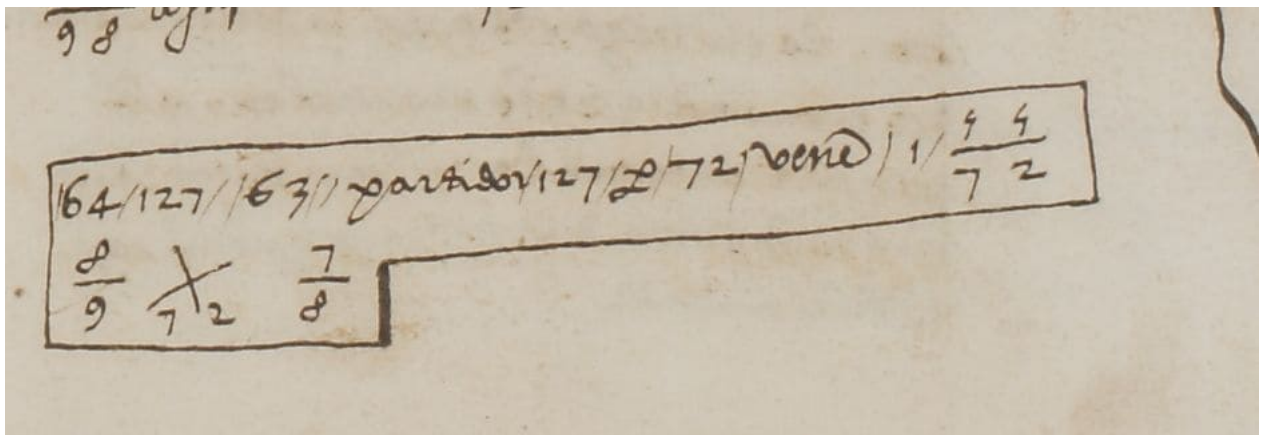 98
64/127//63// partidor/127/p/72/ vene / 1 / 55
72
8 7
9 72 8